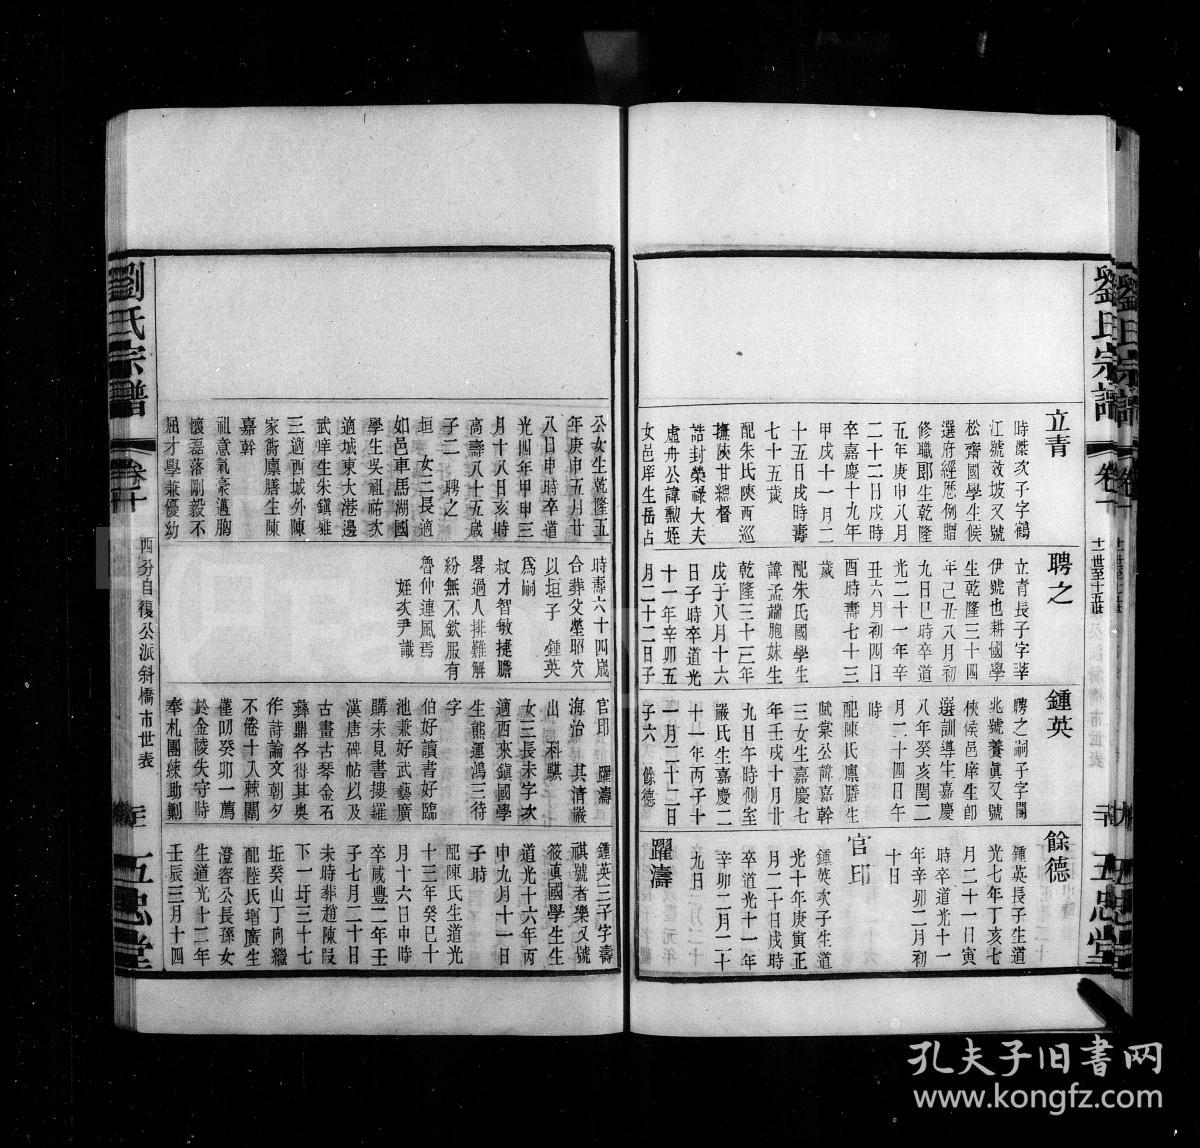 劉氏宗譜
卷十
十一世至十五世
五忠堂
立青
時傑次子字鶴
江號效坡又號
松齋國學生候
選府經歷例贈
修職郎生乾隆
五年庚申八月
二十二日戌時
卒嘉慶十九年
甲戌十一月二
十五日戌時壽
七十五歲
配朱氏陝西巡
撫陝甘總督
誥封榮祿大夫
虛舟公諱勲姪
女邑庠生岳占
聘之
立青長子字莘
伊號也耕國學
生乾隆三十四
年己丑八月初
九日巳時卒道
光二十一年辛
丑六月初四日
酉時壽七十三
歲
配朱氏國學生
諱孟端胞妹生
乾隆三十三年
戊子八月十六
日子時卒道光
十一年辛卯五
月二十二日子
鍾英
聘之嗣子字閬
兆號養眞又號
俠侯邑庠生卽
選訓導生嘉慶
八年癸亥閏二
月二十四日午
時
配陳氏廪膳生
賦棠公諱嘉幹
三女生嘉慶七
年壬戌十月廿
九日午時側室
嚴氏生嘉慶二
十一年丙子十
二月二十二日
子六 餘德
餘德
鍾英長子生道
光七年丁亥七
月二十一日寅
時卒道光十一
年辛卯二月初
十日
官印
鍾英次子生道
光十年庚寅正
月二十日戌時
卒道光十一年
辛卯二月二十
九日
躍濤
公女生乾隆五
年庚申五月廿
八日申時卒道
光四年甲申三
月十八日亥時
高壽八十五歲
子二 聘之
垣 女二長適
如邑車馬湖國
學生吳祖祐次
適城東大港邊
武庠生朱鎭雄
三適西城外陳
家衖廪膳生陳
嘉幹
祖意氣豪邁胸
懷磊落剛毅不
屈才學兼優幼
時壽六十四歲
合葬父塋昭穴
以垣子 鍾英
爲嗣
叔才智敏捷膽
畧過人排難解
紛無不欽服有
魯仲連風焉
姪次尹識
官印 躍濤
海治 其清嚴
出 科騏
女三長未字次
適西來鎭國學
生熊運鴻三待
字
伯好讀書好臨
池兼好武藝廣
購未見書摟羅
漢唐碑帖以及
古畫古琴金石
彝鼎各得其奥
作詩論文朝夕
不倦十入棘闈
僅叨癸卯一薦
於金陵失守時
奉札團練助剿
鍾英三子字壽
祺號者樂又號
筱眞國學生生
道光十六年丙
申九月十一日
子時
配陳氏生道光
十三年癸巳十
月十六日申時
卒咸豐二年壬
子七月二十日
未時葬趙陳叚
下一圩三十七
坵癸山丁向繼
配陸氏堉廣生
澄容公長孫女
生道光十二年
壬辰三月十四
劉氏宗譜
卷十
四分自復公派斜橋市世表
五忠堂
孔夫子旧书网
www.kongfz.com